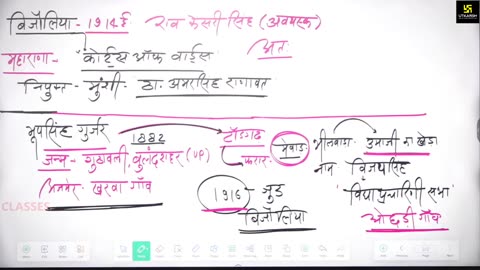 बिजौलिया - 1914 ई राव केसरी सिंह (अवयस्क)
महाराणा - 'कोर्ट्स ऑफ वार्ड्स अतः
नियुक्त - मुंशी - ठा. अमरसिंह राणावत
भूपसिंह गुर्जर 1882 टॉडगढ़ मेवाड़ भीलवाड़ा उमाजी का खेड़ा
जन्म - गुठावली, बुलंदशहर (UP) फरार नाम विजयसिंह
अजमेर - खरवा गाँव 1916 - जुड़ 'विद्या प्रचारिणी सभा'
बिजौलिया ओछड़ी गाँव
CLASSES
UTKARSH